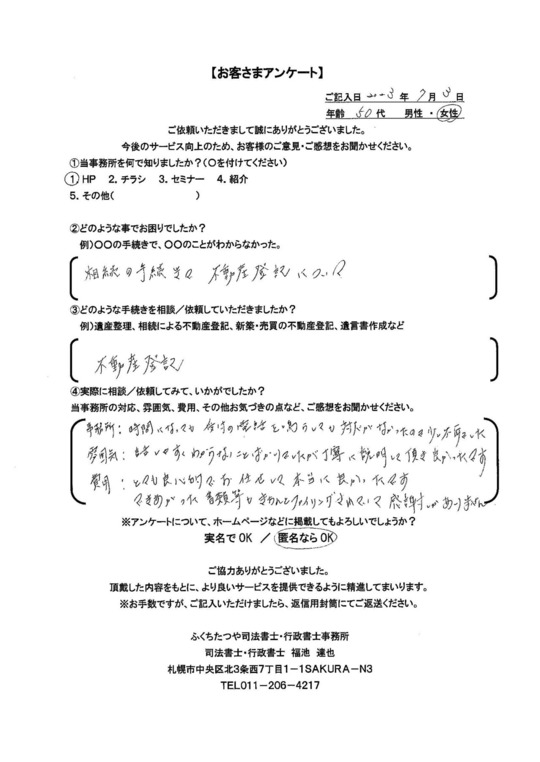 【お客さまアンケート】
ご記入日 2023 年 7 月 3 日
年齢 50 代 男性 ・ 女性
ご依頼いただきまして誠にありがとうございました。
今後のサービス向上のため、お客様のご意見・ご感想をお聞かせください。
①当事務所を何で知りましたか?(○を付けてください)
1. HP 2. チラシ 3. セミナー 4. 紹介
5. その他( )
②どのような事でお困りでしたか?
例)○○の手続きで、○○のことがわからなかった。
相続の手続き 不動産登記について
③どのような手続きを相談/依頼していただきましたか?
例)遺産整理、相続による不動産登記、新築・売買の不動産登記、遺言書作成など
不動産登記
④実際に相談/依頼してみて、いかがでしたか?
当事務所の対応、雰囲気、費用、その他お気づきの点など、ご感想をお聞かせください。
事務所:時間になっても 対応がなかったのは少し
雰囲気:話しやすくわからないことばかりでしたが丁寧に説明して頂き良かったです
費用:とても良い お任せして本当に良かったです
できあがった書類等もきちんとファイリングされていて感謝しかありません
※アンケートについて、ホームページなどに掲載してもよろしいでしょうか?
実名でOK / 匿名ならOK
ご協力ありがとうございました。
頂戴した内容をもとに、より良いサービスを提供できるように精進してまいります。
※お手数ですが、ご記入いただけましたら、返信用封筒にてご返送ください。
ふくちたつや司法書士・行政書士事務所
司法書士・行政書士 福池 達也
札幌市中央区北3条西7丁目1-1SAKURA-N3
TEL011-206-4217